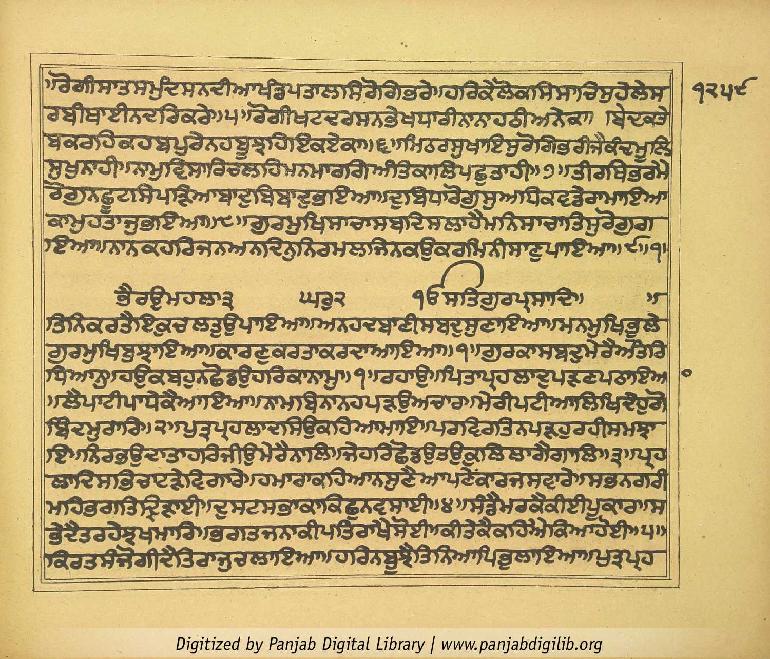 ॥ਰੋਗੀਸਾਤਸਮੁੰਦਸਨਦੀਆਖੰਡਪਤਾਲਸਿਰੋਗਿਭਰੇ॥ਹਰਿਕੇਲੋਕਸਿਸਾਚਿਸੁਹੇਲੇਸ
ਰਬੀਥਾਈਨਦਰਿਕਰੇ॥੫॥ਰੋਗੀਖਟਦਰਸਨਭੇਖਧਾਰੀਨਾਨਾਹਠੀਅਨੇਕਾ॥ਬੇਦਕਤੇ
ਬਕਰਹਿਕਹਬਪੁਰੇਨਹਬੂਝਹਿਇਕਏਕਾ॥੬॥ਮਿਠਰਸੁਖਾਇਸੁਰੋਗਿਭਰੀਜੈਕੰਦਮੂਲਿ
ਸੁਖੁਨਾਹੀ॥ਨਾਮੁਵਿਸਾਰਿਚਲਹਿਅਨਮਾਰਗਿਅੰਤਕਾਲਿਪਛੁਤਾਹੀ॥੭॥ਤੀਰਥਿਭਰਮੈ
ਰੋਗੁਨਛੂਟਸਿਪੜਿਆਬਾਦੁਬਿਬਾਦੁਭਇਆ॥ਦੁਬਿਧਾਰੋਗੁਸੁਅਧਿਕਵਡੇਰਾਮਾਇਆ
ਕਾਮੁਹਤਾਜੁਭਇਆ॥੮॥ਗੁਰਮੁਖਿਸਾਚਾਸਬਦਿਸਲਾਹੈਮਨਿਸਾਚਾਤਿਸੁਰੋਗੁਗ
ਇਆ॥ਨਾਨਕਹਰਿਜਨਅਨਦਿਨੁਨਿਰਮਲਜਿਨਕਉਕਰਮਿਨੀਸਾਣੁਪਇਆ॥੯॥੧
ਭੈਰਉਮਹਲਾ੩ ਘਰੁ੨ ੴਸਤਿਗੁਰਪ੍ਰਸਾਦਿ॥
ਤਿਨਿਕਰਤੈਇਕੁਚਲਤੁਉਪਾਇਆ॥ਅਨਹਦਬਾਣੀਸਬਦੁਸੁਣਾਇਆ॥ਮਨਮੁਖਿਭੂਲੇ
ਗੁਰਮੁਖਿਬੁਝਾਇਆ॥ਕਾਰਣੁਕਰਤਾਕਰਦਾਆਇਆ॥੧॥ਗੁਰਕਾਸਬਦੁਮੇਰੈਅੰਤਰਿ
ਧਿਆਨੁ॥ਹਉਕਬਹੁਨਛੋਡਉਹਰਿਕਾਨਾਮੁ॥੧॥ਰਹਾਉ॥ਪਿਤਾਪ੍ਰਹਲਾਦੁਪੜਣਪਠਾਇਆ
॥ਲੈਪਾਟੀਪਾਧੇਕੈਆਇਆ॥ਨਾਮਬਿਨਾਨਹਪੜਉਅਚਾਰ॥ਮੇਰੀਪਟੀਆਲਿਖਿਦੇਹੁਗੋ
ਬਿੰਦਮੁਰਾਰਿ॥੨॥ਪੁਤ੍ਰਪ੍ਰਹਲਾਦਸਿਉਕਹਿਆਮਾਇ॥ਪਰਵਿਰਤਿਨਪੜਹੁਰਹੀਸਮਝਾ
ਇ॥ਨਿਰਭਉਦਾਤਾਹਰਿਜੀਉਮੇਰੈਨਾਲਿ॥ਜੇਹਰਿਛੋਡਉਤਉਕੁਲਿਲਾਗੈਗਾਲਿ॥੩॥ਪ੍ਰਹ
ਲਾਦਿਸਭਿਚਾਟੜੇਵਿਗਾਰੇ॥ਹਮਾਰਾਕਹਿਆਨਸੁਣੈਆਪਣੇਕਾਰਜਸਵਾਰੇ॥ਸਭਨਗਰੀ
ਮਹਿਭਗਤਿਦ੍ਰਿੜਾਈ॥ਦੁਸਟਸਭਾਕਾਕਿਛੁਨਵਸਾਈ॥੪॥ਸੰਡੈਮਰਕੈਕੀਈਪੂਕਾਰ॥ਸ
ਭੇਦੈਤਰਹੇਝਖਮਾਰਿ॥ਭਗਤਜਨਾਕੀਪਤਿਰਾਖੈਸੋਈ॥ਕੀਤੇਕੈਕਹਿਐਕਿਆਹੋਈ॥੫॥
ਕਿਰਤਸੰਜੋਗੀਦੈਤਿਰਾਜੁਚਲਾਇਆ॥ਹਰਿਨਬੂਝੈਤਿਨਿਆਪਿਭੁਲਾਇਆ॥ਪੁਤ੍ਰਪ੍ਰਹ
੧੨੫੯
Digitized by Panjab Digital Library | www.panjabdigilib.org